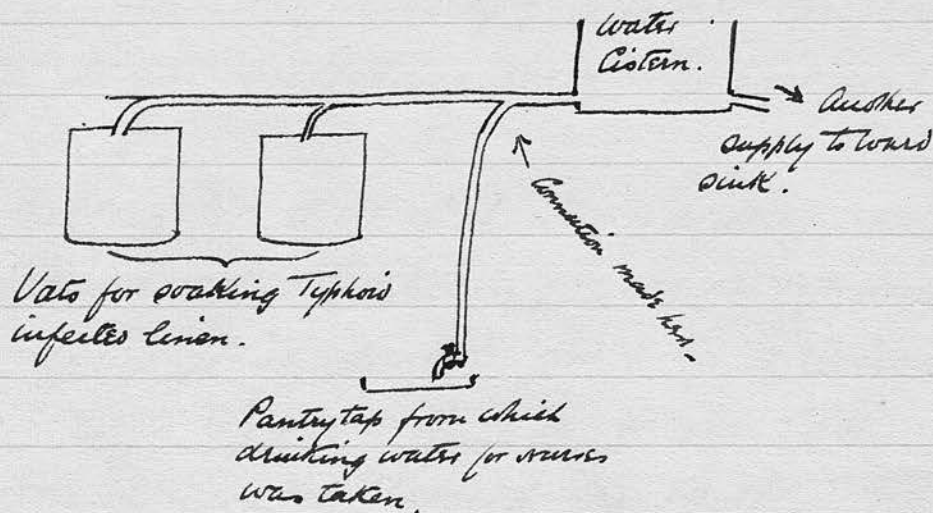 Water
Cistern.
Another
supply to ward
sink.
Connection made here.
Vats for soaking Typhoid
infected linen.
Pantry tap from which
drinking water for nurses
was taken.